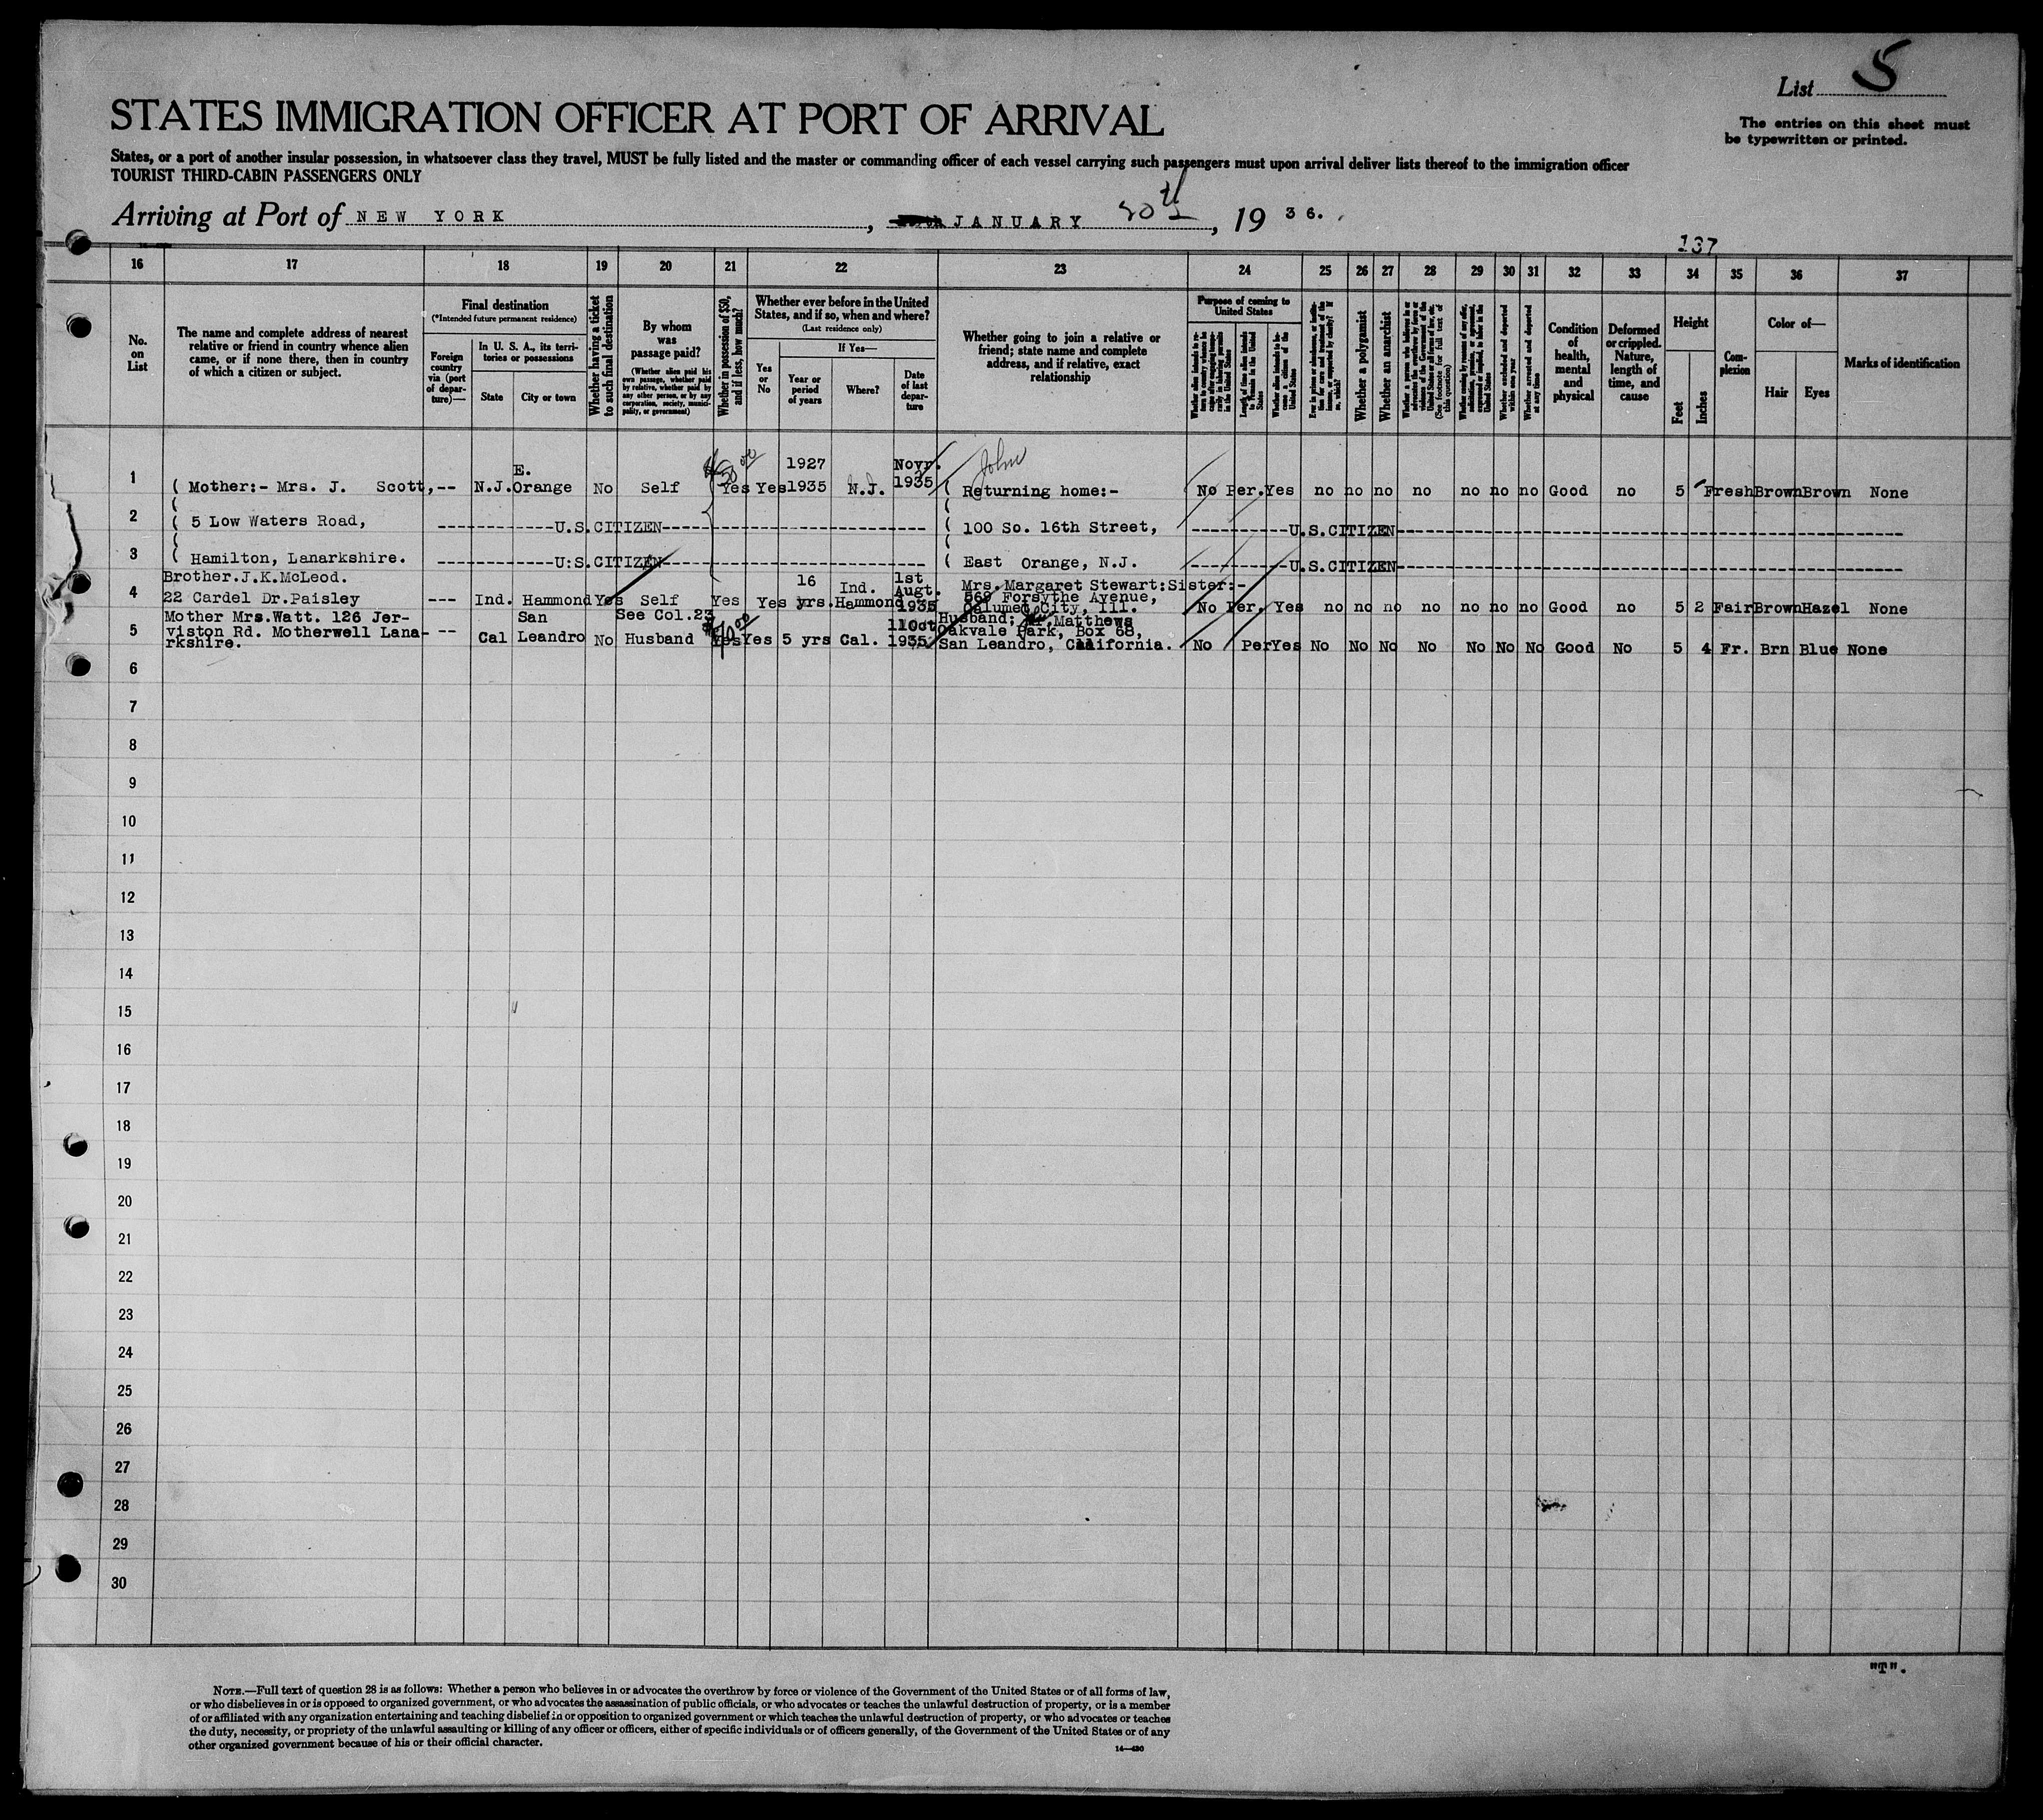 List 5
STATES IMMIGRATION OFFICER AT PORT OF ARRIVAL
The entries on this sheet must
be typewritten or printed.
States, or a port of another insular possession, in whatsoever class they travel, MUST be fully listed and the master or commanding officer of each vessel carrying such passengers must upon arrival deliver lists thereof to the immigration officer
TOURIST THIRD-CABIN PASSENGERS ONLY
Arriving at Port of NEW YORK, JANUARY 20th, 1936.
137
16 17 18 19 20 21 22 23 24 25 26 27 28 29 30 31 32 33 34 35 36 37
No.
on
List
The name and complete address of nearest
relative or friend in country whence alien
came, or if none there, then in country
of which a citizen or subject.
Final destination
(*Intended future permanent residence)
Foreign
country
via (port
of depar-
ture)—
In U. S. A., its terri-
tories or possessions
State
City or town
Whether having a ticket
to such final destination
By whom
was
passage paid?
(Whether alien paid his
own passage, whether paid
by relative, whether paid by
any other person, or by any
corporation, society, munici-
pality, or government)
Whether in possession of $50,
and if less, how much?
Whether ever before in the United
States, and if so, when and where?
(Last residence only)
Yes
or
No
If Yes—
Year or
period
of years
Where?
Date
of last
depar-
ture
Whether going to join a relative or
friend; state name and complete
address, and if relative, exact
relationship
Purpose of coming to
United States
Whether alien intends to re-
turn to country whence he
came after engaging tempo-
rarily in laboring pursuits
in the United States
Length of time alien intends
to remain in the United
States
Whether alien intends to be-
come a citizen of the
United States
Ever in prison or almshouse, or institu-
tion for care and treatment of the
insane, or supported by charity? If
so, which?
Whether a polygamist
Whether an anarchist
Whether a person who believes in or
advocates the overthrow by force or
violence of the Government of the
United States or all forms of law, etc.
(See footnote for full text of
this question)
Whether coming by reason of any offer,
solicitation, promise, or agreement,
expressed or implied, to labor in the
United States
Whether excluded and deported
within one year
Whether arrested and deported
at any time
Condition
of
health,
mental
and
physical
Deformed
or crippled.
Nature,
length of
time, and
cause
Height
Feet
Inches
Com-
plexion
Color of—
Hair
Eyes
Marks of identification
1 ( Mother:- Mrs. J. Scott, -- N.J. E. Orange No Self $50.00 Yes Yes 1927 1935 N.J. Novr. 1935 John
( Returning home:- No Per. Yes no no no no no no no Good no 5 Fresh Brown Brown None
2 ( 5 Low Waters Road, ------------U.S.CITIZEN------------ ( 100 So. 16th Street, ----------U.S.CITIZEN----------
3 ( Hamilton, Lanarkshire. ------------U.S.CITIZEN------------ ( East Orange, N.J. ----------U.S.CITIZEN----------
4 Brother.J.K.McLeod.
22 Cardel Dr.Paisley --- Ind. Hammond Yes Self Yes Yes 16 yrs. Ind. Hammond 1st Augt. 1935
Mrs. Margaret Stewart:Sister:-
569 Forsythe Avenue,
Calumet City, Ill. No Per. Yes no no no no no no no Good no 5 2 Fair Brown Hazel None
5 Mother Mrs.Watt. 126 Jer-
viston Rd. Motherwell Lana-
rkshire. -- Cal San Leandro No See Col.23 Husband Yes Yes 5 yrs Cal. 11Oct 1935
Husband; Matthews
Oakvale Park, Box 68,
San Leandro, California. No Per Yes No No No No No No No Good No 5 4 Fr. Brn Blue None
6
7
8
9
10
11
12
13
14
15
16
17
18
19
20
21
22
23
24
25
26
27
28
29
30
"T".
NOTE.—Full text of question 28 is as follows: Whether a person who believes in or advocates the overthrow by force or violence of the Government of the United States or of all forms of law,
or who disbelieves in or is opposed to organized government, or who advocates the assassination of public officials, or who advocates or teaches the unlawful destruction of property, or is a member
of or affiliated with any organization entertaining and teaching disbelief in or opposition to organized government or which teaches the unlawful destruction of property, or who advocates or teaches
the duty, necessity, or propriety of the unlawful assaulting or killing of any officer or officers, either of specific individuals or of officers generally, of the Government of the United States or of any
other organized government because of his or their official character.
14—430